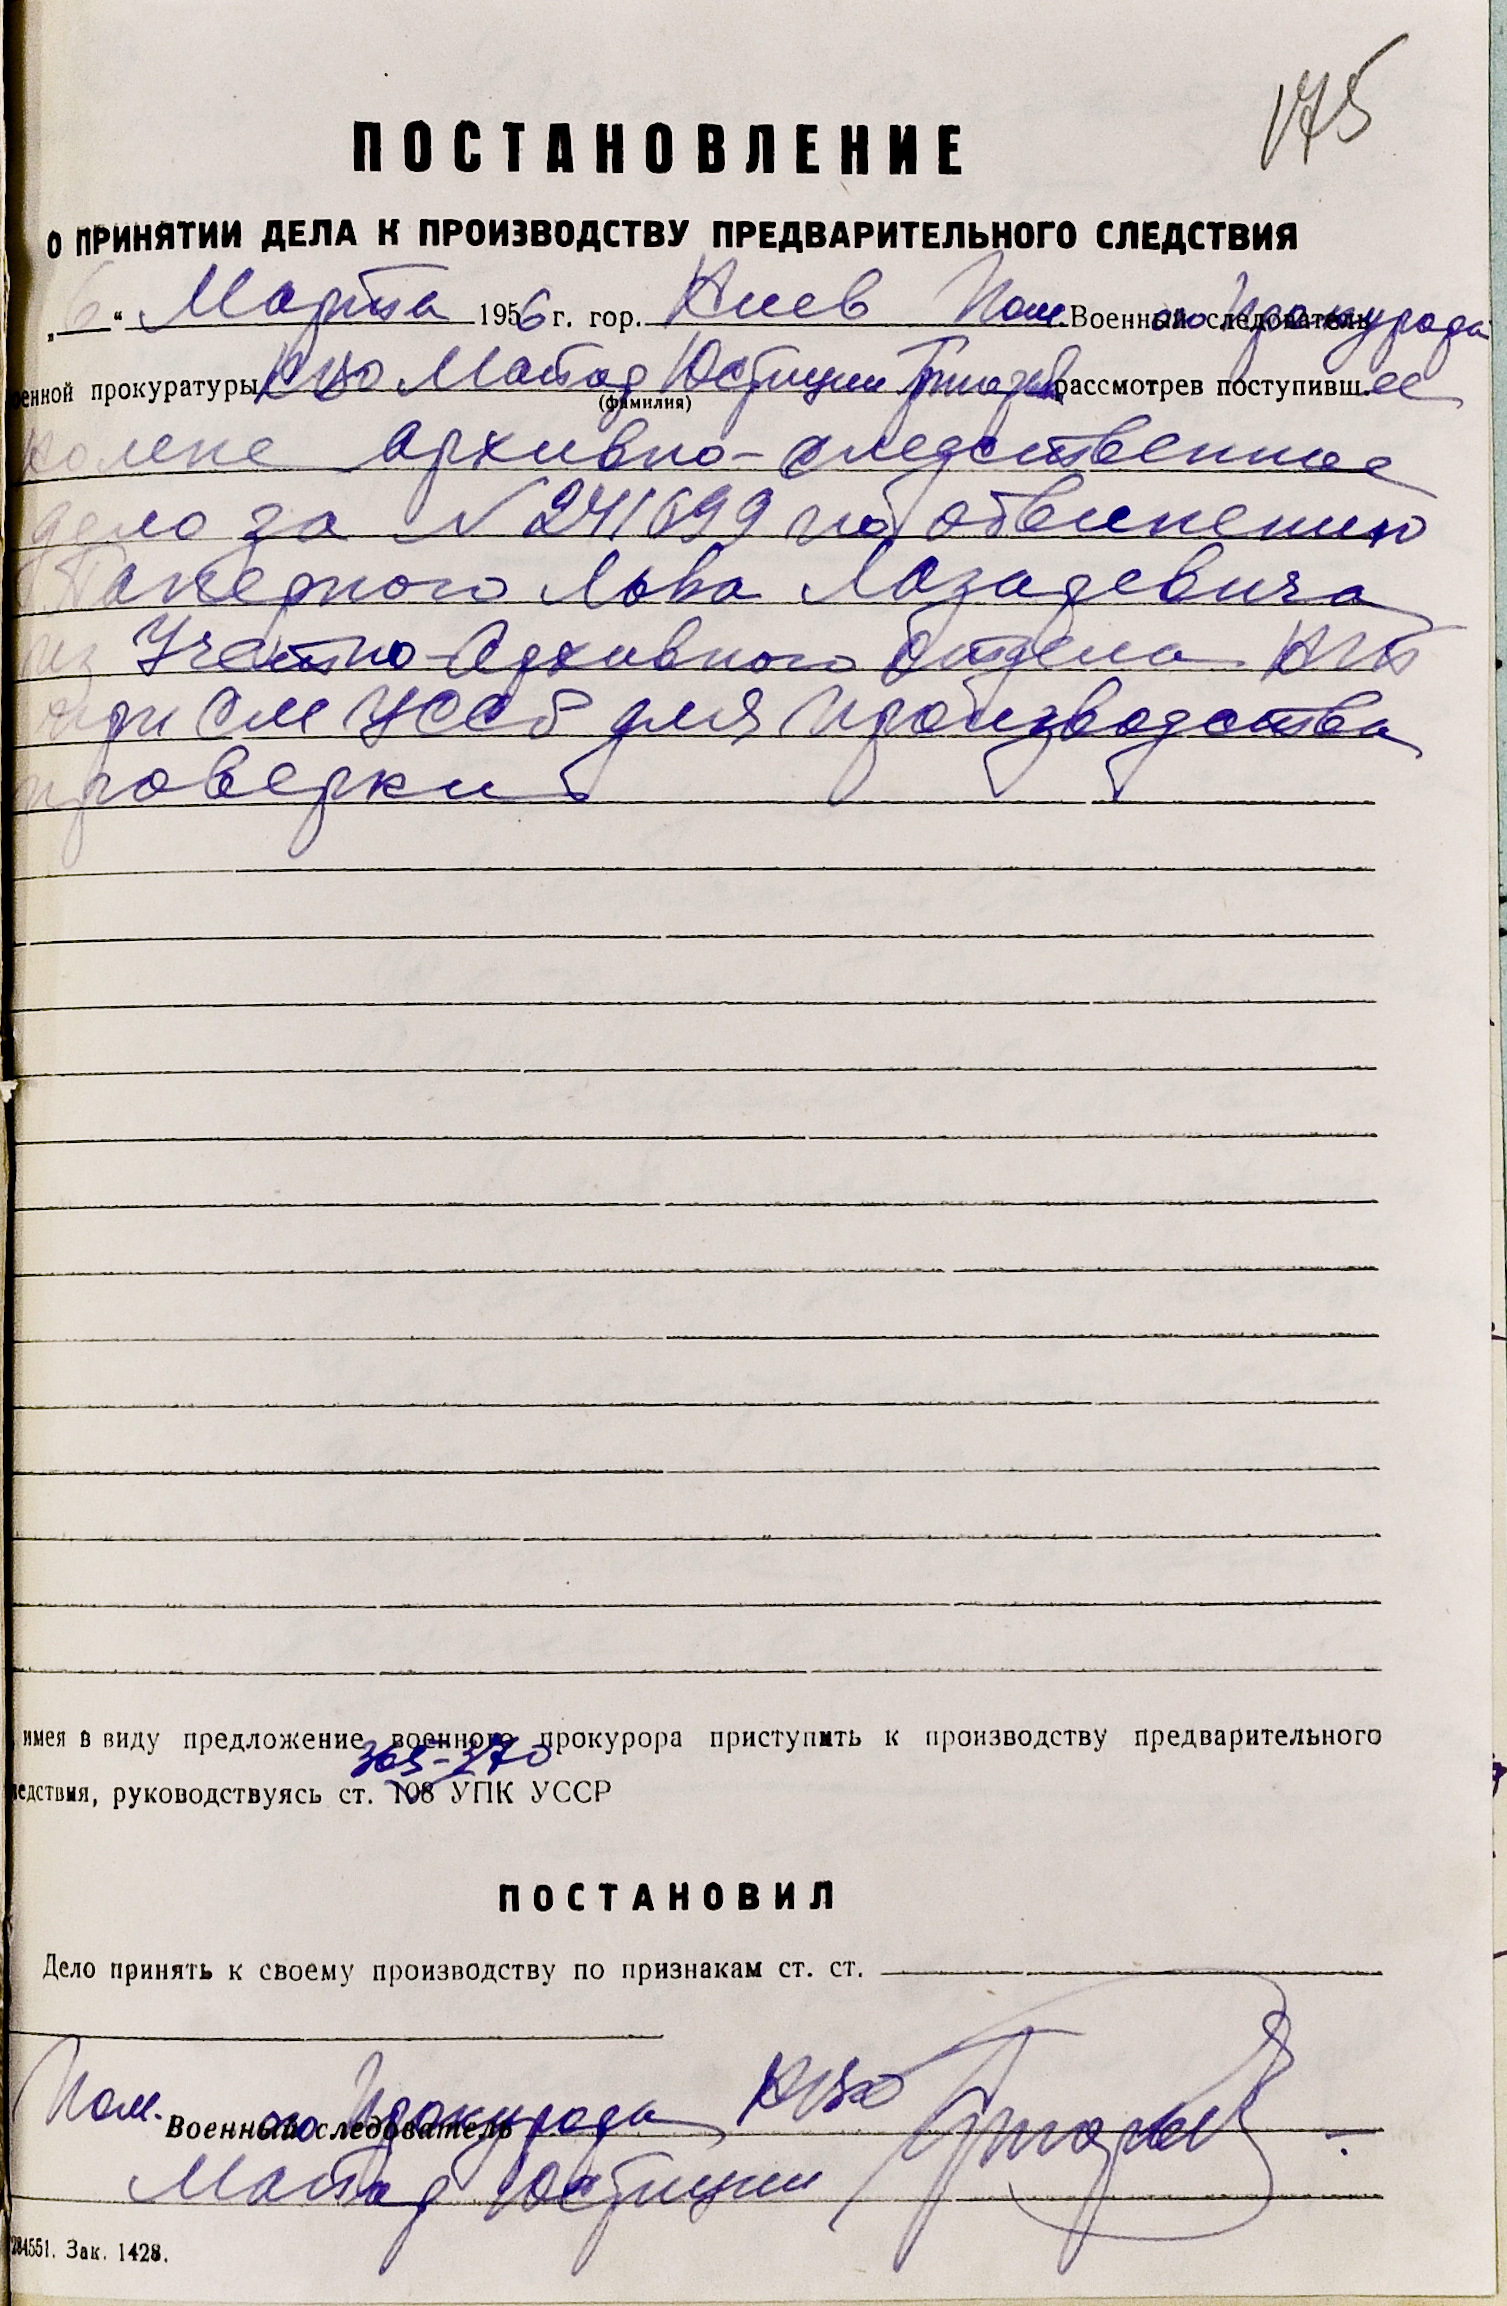 175
ПОСТАНОВЛЕНИЕ
О ПРИНЯТИИ ДЕЛА К ПРОИЗВОДСТВУ ПРЕДВАРИТЕЛЬНОГО СЛЕДСТВИЯ
„6“ Марта 1956 г. гор. Киев Пом. Военный следователь ого Прокурора
военной прокуратуры КВО Майор Юстиции рассмотрев поступивш.ее
(фамилия)
ко мне архивно-следственное
дело за № 241699 по обвинению
Паперного Льва Лазаревича
из Учетно-Архивного Отдела КГБ
при СМ УССР для производства
проверки
имея в виду предложение военного прокурора приступить к производству предварительного
365-370
ледствия, руководствуясь ст. 108 УПК УССР
ПОСТАНОВИЛ
Дело принять к своему производству по признакам ст. ст.
Пом. Военный следователь ого Прокурора КВО
Майор Юстиции
284551. Зак. 1428.